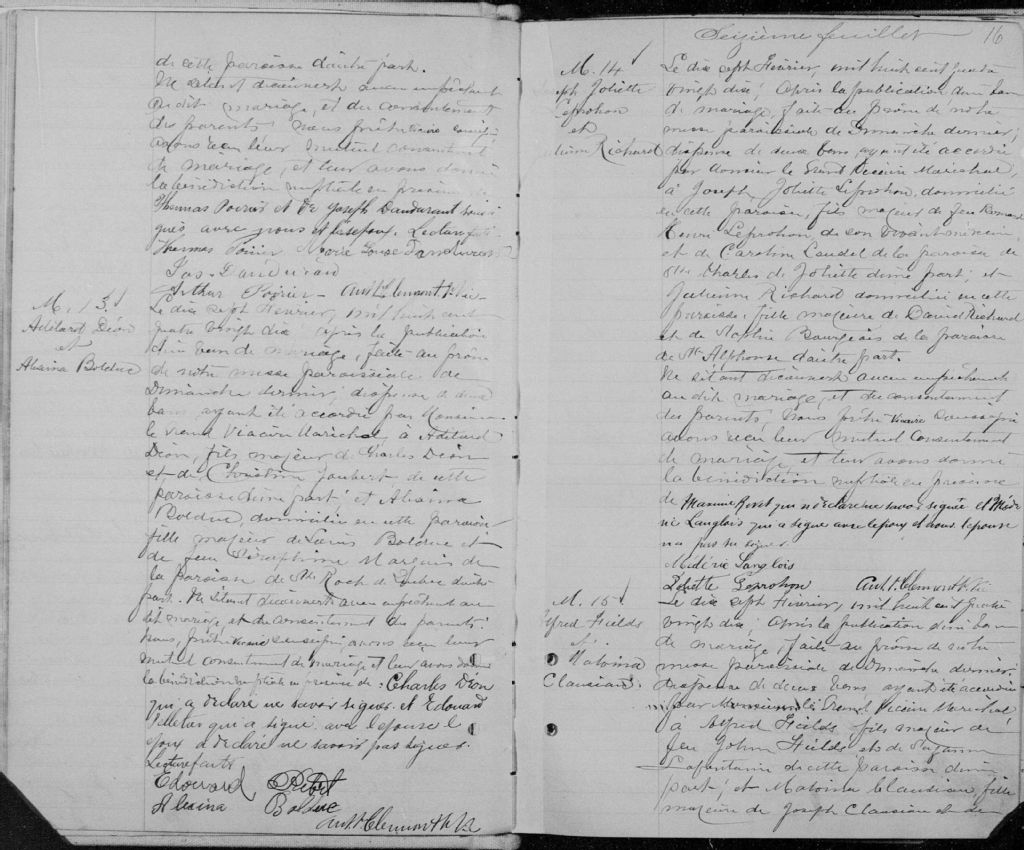 de cette paroisse d'autre part.
Ne s'étant découvert aucun empêchement
au dit mariage, et du consentement
des parents Nous prêtre vicaire soussigné
avons reçu leur mutuel consentement
de mariage, et leur avons donné
la bénédiction nuptiale en présence de
Thomas Poirier et de Joseph Dandurant soussi
gnés avec nous et les époux. Lecture faite
Thomas Poirier Marie Louise Dandurand
Jos. Dandurand
Arthur Poirier - Ant. Clermont Ptr Vic
M. 13
Adélard Dion
et
Alexina Bolduc
Le dix sept Février, mil huit cent
quatre vingt dix après la publication
d'un ban de mariage, faite au prône
de notre messe paroissiale de
Dimanche dernier, dispense de deux
bans ayant été accordée par Monsieur
le Grand Vicaire Maréchal, à Adélard
Dion, fils majeur de Charles Dion
et de Christine Joubert de cette
paroisse d'une part et Alexina
Bolduc, domiciliée en cette paroisse
fille majeure de Louis Bolduc et
de feu Séraphine Marquis de
la paroisse de St. Roch de Québec d'autre
part. Ne s'étant découvert aucun empêchement au
dit mariage et du consentement des parents
nous, prêtre vicaire soussigné, avons reçu leur
mutuel consentement de mariage et leur avons donné
la bénédiction nuptiale en présence de Charles Dion
qui a déclaré ne savoir signer et Edouard
qui a signé avec l'épouse l'
époux a déclaré ne savoir pas signer.
Lecture faite
Edouard
Alexina Bolduc
Ant. Clermont Ptr Vic
Seizième feuillet 16
M. 14
Joseph Joliette
Leprohon
et
Julienne Richard
Le dix sept Février, mil huit cent quatre
vingt dix Après la publication d'un ban
de mariage, faite au prône de notre
messe paroissiale de Dimanche dernier,
dispense de deux bans ayant été accordée
par Monsieur le Grand Vicaire Maréchal,
à Joseph Joliette Leprohon, domicilié
en cette paroisse, fils majeur de feu Bernard
Henri Leprohon, de son vivant médecin
et de Caroline Caudel de la paroisse de
St. Charles de Joliette d'une part et
Julienne Richard domiciliée en cette
paroisse, fille majeure de David Richard
et de Sophie Bourgeois de la paroisse
de St. Alphonse d'autre part.
Ne s'étant découvert aucun empêchement
au dit mariage, et du consentement
des parents, nous prêtre vicaire soussigné
avons reçu leur mutuel consentement
de mariage et leur avons donné
la bénédiction nuptiale en présence
de Maxime Rivet qui a déclaré ne savoir signer et Médé
ric Langlois qui a signé avec l'époux et nous l'épouse
n'a pas su signer.
Médéric Langlois
Joliette Leprohon Ant. Clermont Ptr Vic
M. 15
Alfred Fields
et
Malvina
Clausiau.
Le dix sept Février, mil huit cent quatre
vingt dix Après la publication d'un ban
de mariage, faite au prône de notre
messe paroissiale de Dimanche dernier,
dispense de deux bans ayant été accordée
par Monsieur le Grand Vicaire Maréchal
à Alfred Fields fils majeur de
feu John Fields et de Suzanne
Lafontaine de cette paroisse d'une
part, et Malvina Clausiau fille
majeure de Joseph Clausiau et de